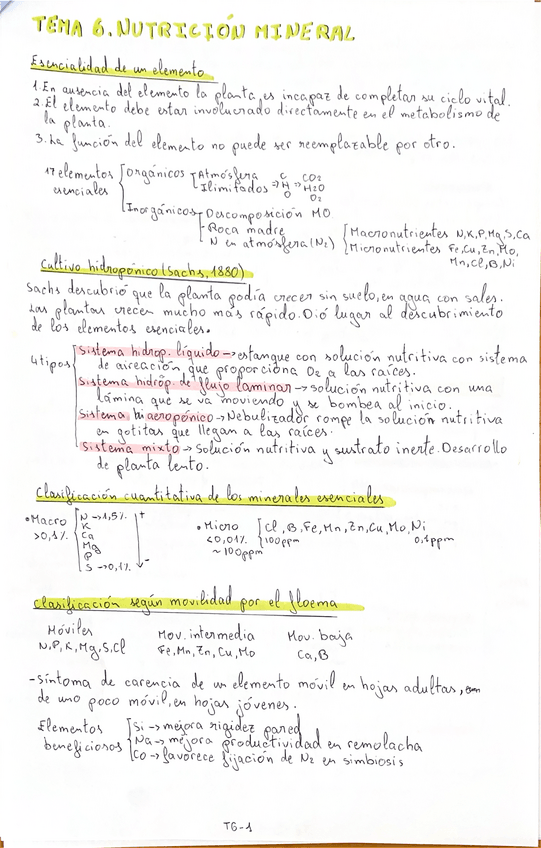 TEMA 6. NUTRICIÓN MINERAL
Esencialidad de un elemento
1. En ausencia del elemento la planta es incapaz de completar su ciclo vital.
2. El elemento debe estar involucrado directamente en el metabolismo de
la planta.
3. La función del elemento no puede ser reemplazable por otro.
17 elementos esenciales
Orgánicos
Atmósfera
Ilimitados → C H O → CO2 H2O O2
Inorgánicos
Descomposición MO
Roca madre
N en atmósfera (N2)
Macronutrientes N, K, P, Mg, S, Ca
Micronutrientes Fe, Cu, Zn, Mo,
Mn, Cl, B, Ni
Cultivo hidropónico (Sachs, 1880)
Sachs descubrió que la planta podía crecer sin suelo, en agua con sales.
Las plantas crecen mucho más rápido. Dió lugar al descubrimiento
de los elementos esenciales.
4 tipos
Sistema hidrop. líquido → estanque con solución nutritiva con sistema
de aireación que proporciona O2 a las raíces.
Sistema hidróp. de flujo laminar → solución nutritiva con una
lámina que se va moviendo y se bombea al inicio.
Sistema hiaeropónico → Nebulizador rompe la solución nutritiva
en gotitas que llegan a las raíces.
Sistema mixto → Solución nutritiva y sustrato inerte. Desarrollo
de planta lento.
Clasificación cuantitativa de los minerales esenciales
• Macro >0,1%
N → 1,5% +
K
Ca
Mg
P
S → 0,1% -
• Micro Cl, B, Fe, Mn, Zn, Cu, Mo, Ni
<0,01% 100ppm 0,1ppm
~100ppm
Clasificación según movilidad por el floema
Móviles Mov. intermedia Mov. baja
N, P, K, Mg, S, Cl Fe, Mn, Zn, Cu, Mo Ca, B
- Síntoma de carencia de un elemento móvil en hojas adultas,
de uno poco móvil, en hojas jóvenes.
Elementos beneficiosos
Si → mejora rigidez pared
Na → mejora productividad en remolacha
Co → favorece fijación de N2 en simbiosis
T6-1